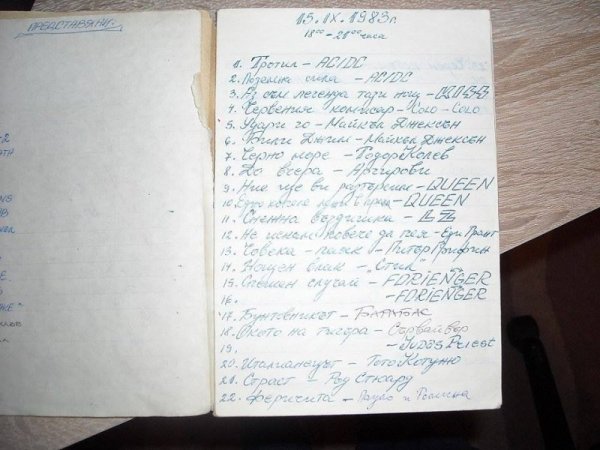 ПРЕДСТАВЯНИ:
-2
ATH
NS
OB
RE
ЖЕ"
15.IX.1983г.
18⁰⁰-20⁰⁰ часа
1. Тротил - ACIDC
2. Подземна сила - ACIDC
3. Аз съм легенда тази нощ -
4. Червения комисар - Коко - Соко
5. Удари го - Майкъл Джексън
6. Били Джийн - Майкъл Джексън
7. Черно море - Тодор Колев
8. До вчера - Аргирови
9. Ние ще ви разтърсим - QUEEN
10. Едно котенце - QUEEN
11. Снежна въздишка - LZ
12. Не искам повече да пея - Еди Грант
13. Човека - - Питър Грифин
14. Нощен влак - „Стил"
15. Спешен случай - FORIENGER
16. - FORIENGER
17. Бунтовникът - БАРАБАС
18. Окото на тигъра - Сървайвър
19. - Judas Priest
20. Италианецът - Тото Кутуньо
21. Страст - Род Стюард
22. Феричита - Пауло и Ромина